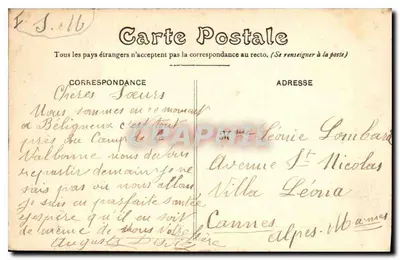 F. S. M
Carte Postale
Tous les pays étrangers n'acceptent pas la correspondance au recto, (Se renseigner à la poste)
CORRESPONDANCE
ADRESSE
Chères Sœurs
Nous sommes en ce moment
à Béligneux c'est tout
près du Camp
Valbonne nous devons
repartir demain je ne
sais pas ou nous allons
Je suis en parfaite santée
j'espère qu'il en soit
de même de vous Votre frère
Auguste
Léonie Lombard
Avenue St Nicolas
Villa Léona
Cannes
Alpes-Marmes